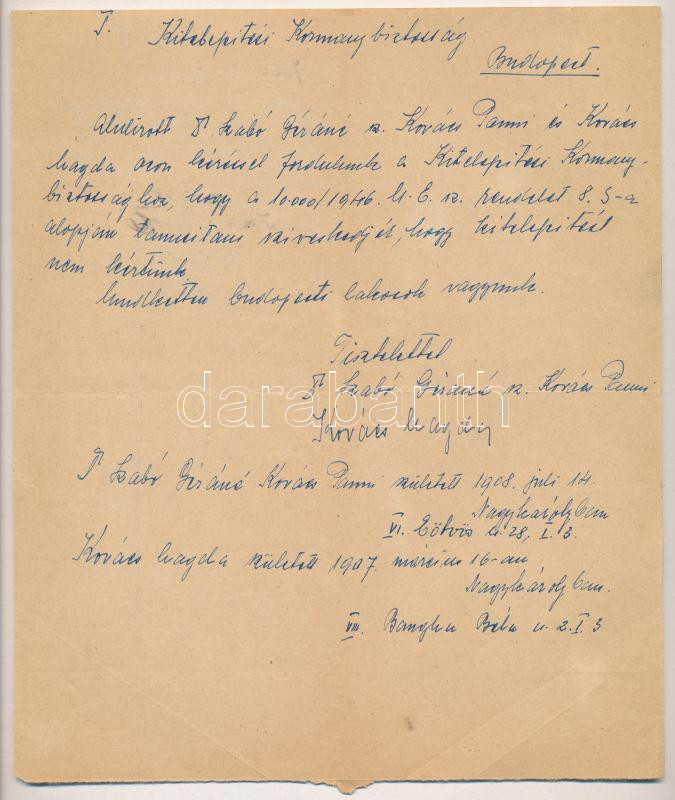 T. Kitelepitési Kormánybiztosság
Budapest.
Alulirott Dr Szabó Gézáné sz. Kovács Panni és Kovács
Magda azon kéréssel fordulunk a Kitelepitési Kormány-
biztossághoz, hogy a 10.000/1946 M. E. sz. rendelet 8. §-a
alapján szíveskedjék, hogy kitelepitést
nem kértünk.
Mindketten budapesti lakosok vagyunk.
Tisztelettel
Dr Szabó Gézáné sz. Kovács Panni
Kovács Magda
darabanth
Dr Szabó Gézáné Kovács Panni született 1908. juli 14.
Nagykárolyban
VI. Eötvös u. 28, I. 3.
Kovács Magda született 1907. március 16-án
Nagykárolyban.
VIII. Bangha Béla u. 2. I. 3